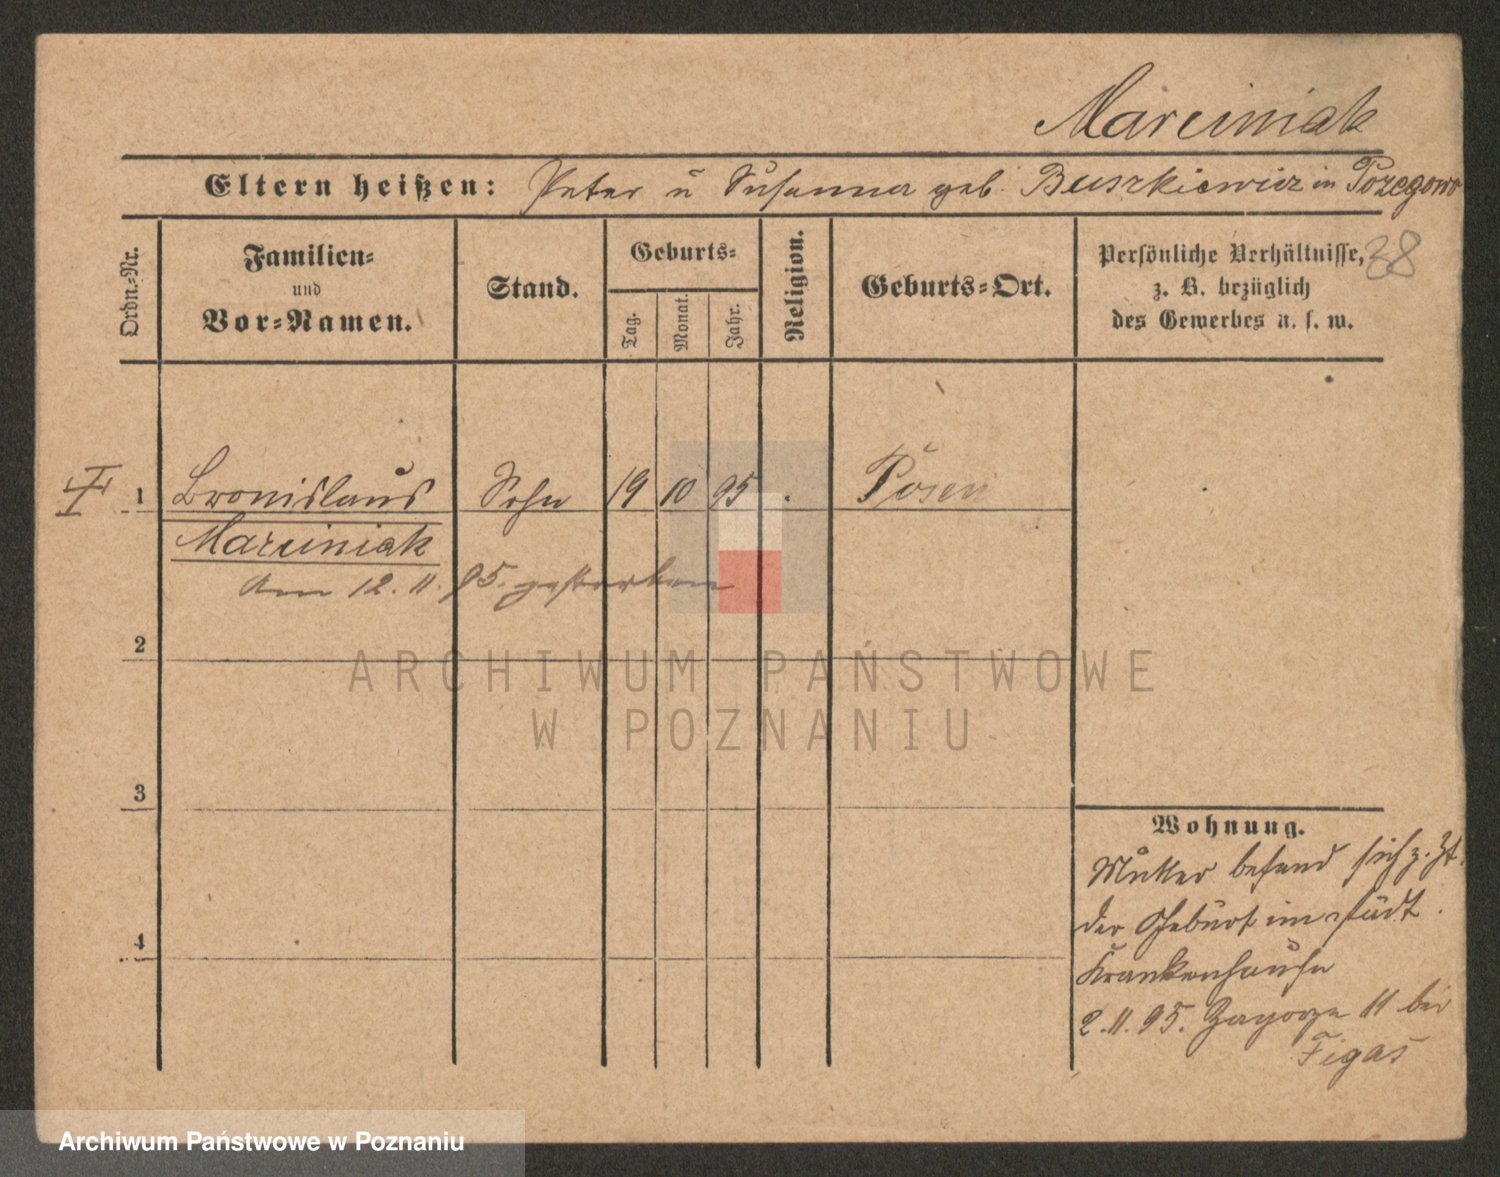 Marciniak
Eltern heißen: Peter u Susanna geb. Buszkiewicz in Pozegowo
38
Ordn.-Nr.
Familien-
und
Vor-Namen.
Stand.
Geburts-
Tag.
Monat.
Jahr.
Religion.
Geburts-Ort.
Persönliche Verhältnisse,
z. B. bezüglich
des Gewerbes u. s. w.
1 Bronislaus Sohn 19 10 95 . Posen
Marciniak
am 12. 11. 95. gestorben
2
ARCHIWUM PAŃSTWOWE
W POZNANIU
3
Wohnung.
Mutter befand sich z. Zt.
der Geburt im städt.
4
Krankenhause
2. 11. 95. Zagorze 11 bei
Figas
Archiwum Państwowe w Poznaniu